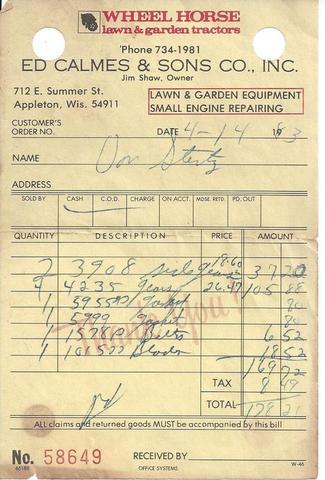 WHEEL HORSE
lawn & garden tractors
'Phone 734-1981
ED CALMES & SONS CO., INC.
Jim Shaw, Owner
712 E. Summer St.
Appleton, Wis. 54911
LAWN & GARDEN EQUIPMENT
SMALL ENGINE REPAIRING
CUSTOMER'S
ORDER NO.
DATE 4-14 1983
NAME Don
ADDRESS
SOLD BY CASH C.O.D. CHARGE ON ACCT. MDSE. RETD. PD. OUT
QUANTITY DESCRIPTION PRICE AMOUNT
2 3908 gears 18.60 37 20
4 4235 Gears 26.47 105 88
1 Gasket
1 Gasket
1 6 52
1 18 52
169 72
TAX 8 49
TOTAL 178 21
Thank you!
ALL claims and returned goods MUST be accompanied by this bill
No. 58649
RECEIVED BY
W-46
OFFICE SYSTEMS